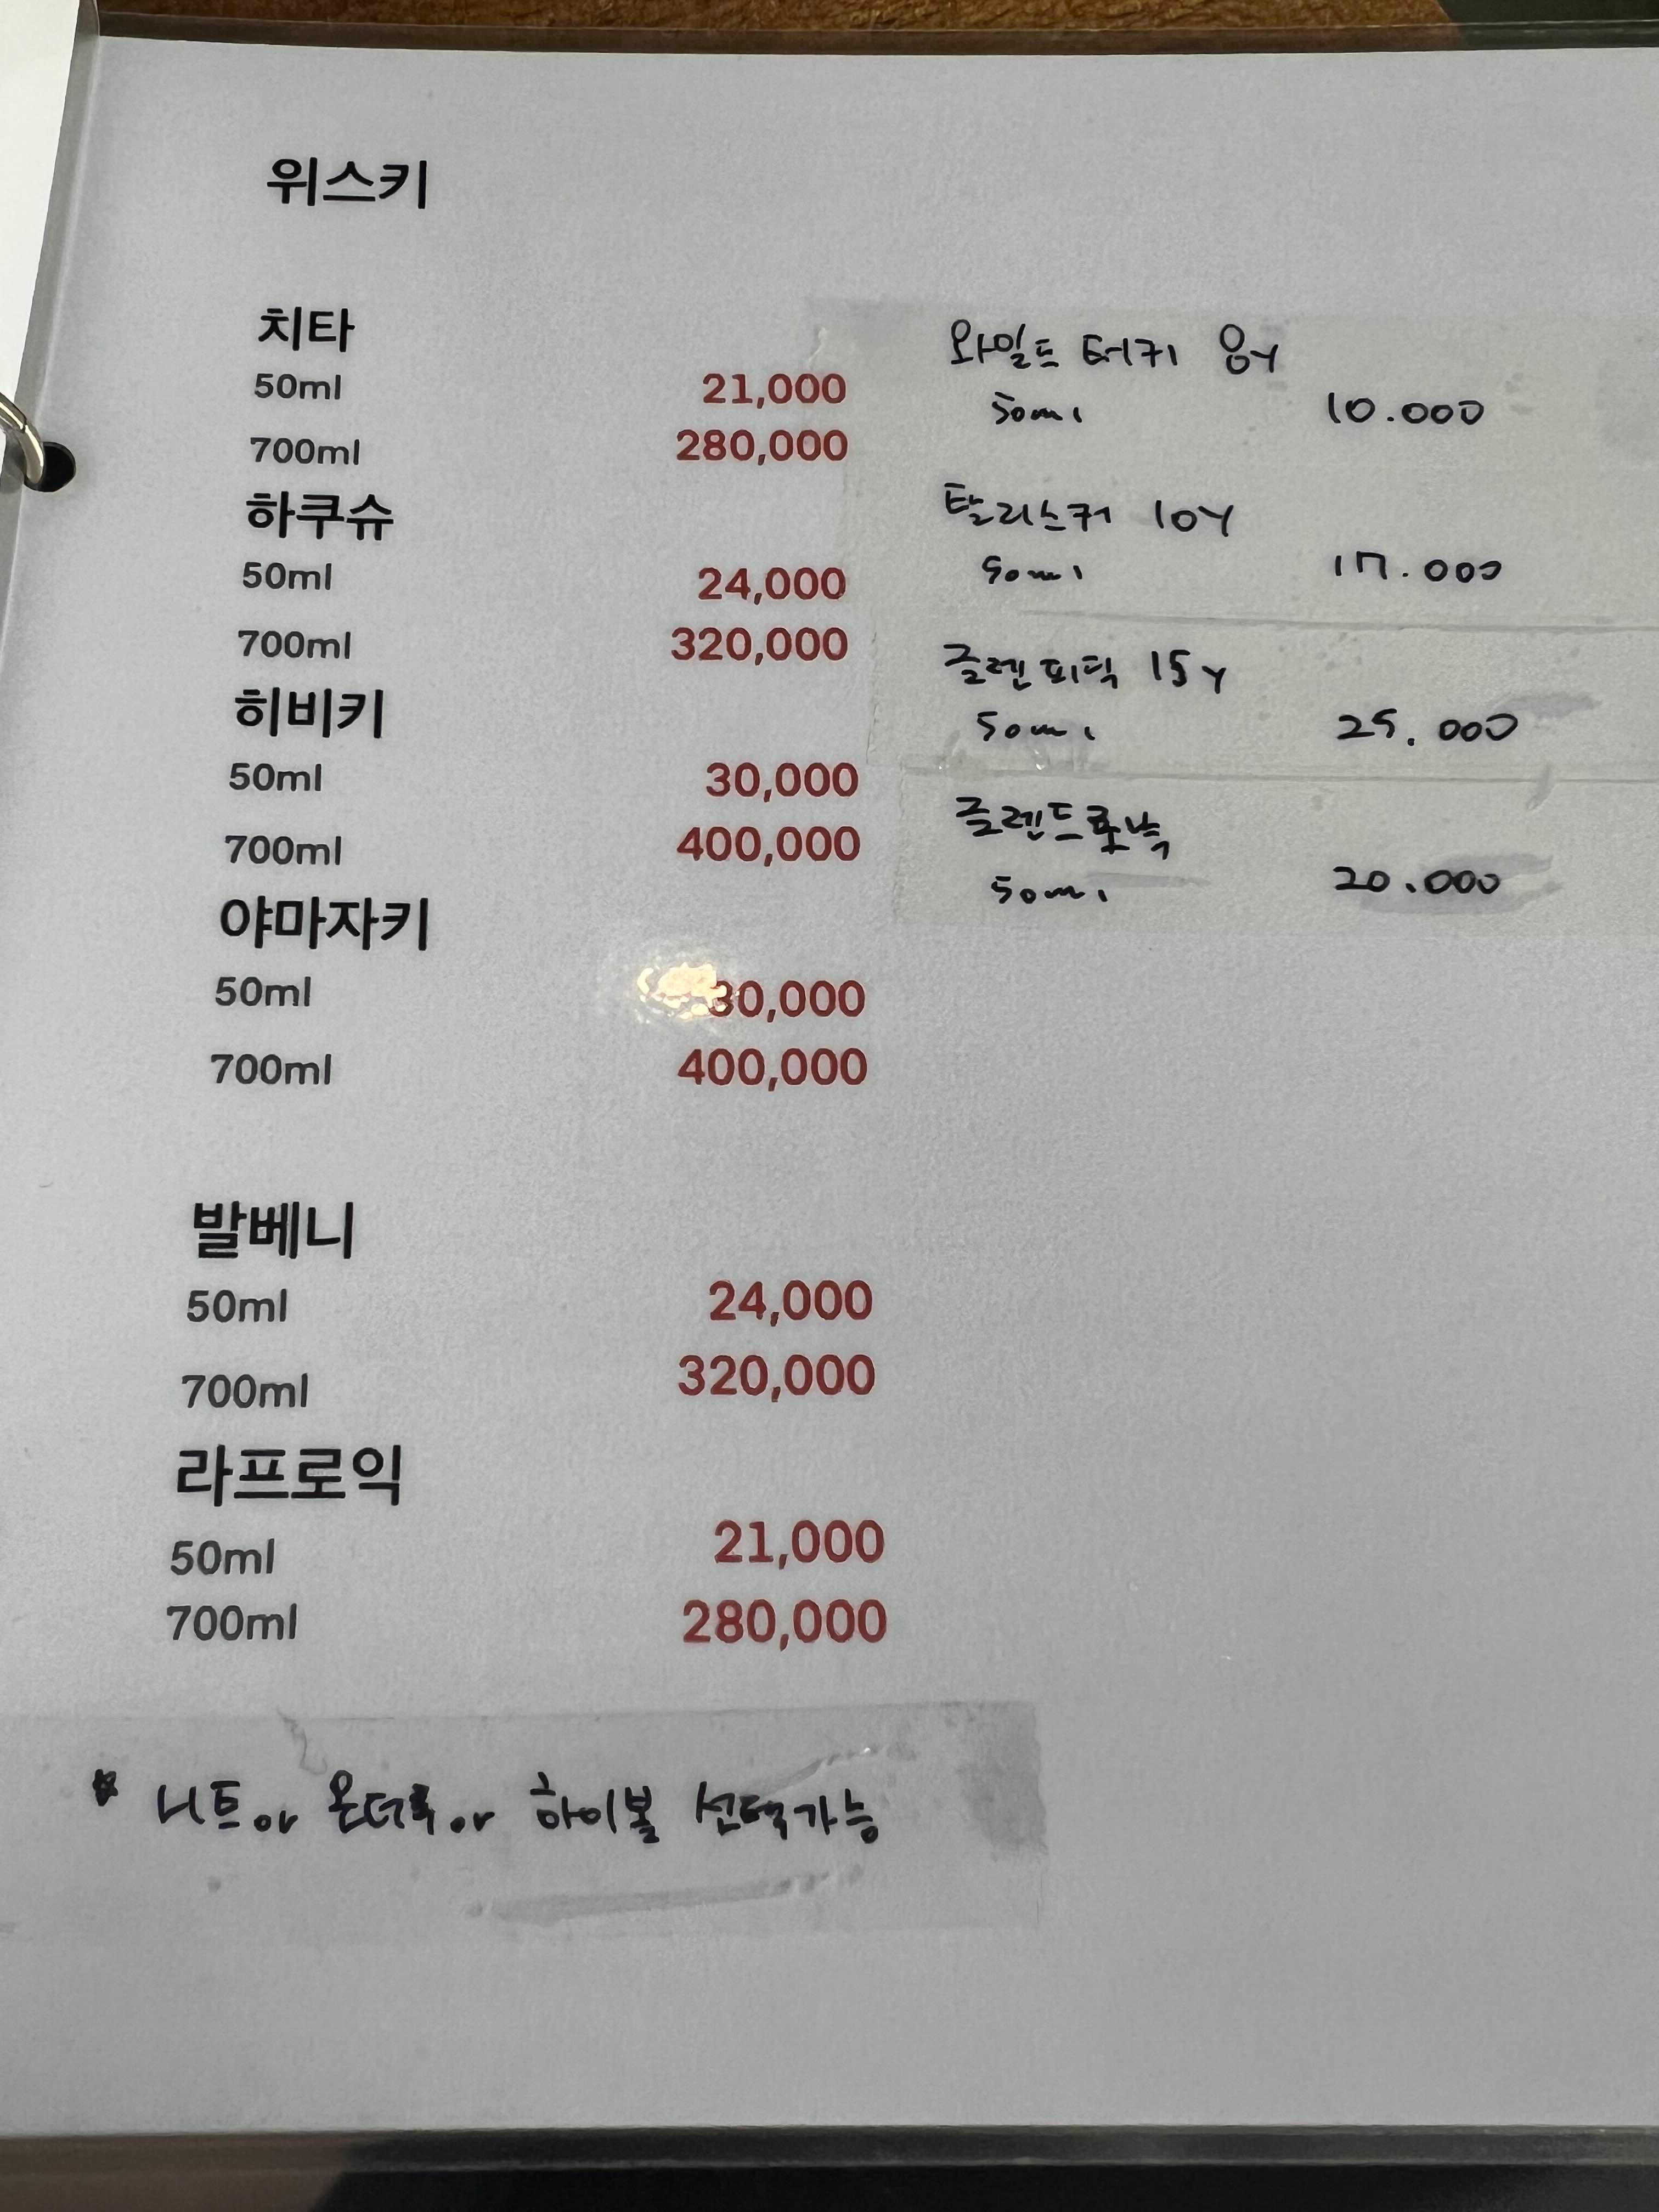 위스키
치타
50ml 21,000
700ml 280,000
하쿠슈
50ml 24,000
700ml 320,000
히비키
50ml 30,000
700ml 400,000
야마자키
50ml 30,000
700ml 400,000
발베니
50ml 24,000
700ml 320,000
라프로익
50ml 21,000
700ml 280,000
와일드 터키 8y
50ml 10.000
탈리스커 10y
50ml 17.000
글렌피딕 15y
50ml 25.000
글렌드로낙
50ml 20.000
* 니트or 온더록or 하이볼 선택가능